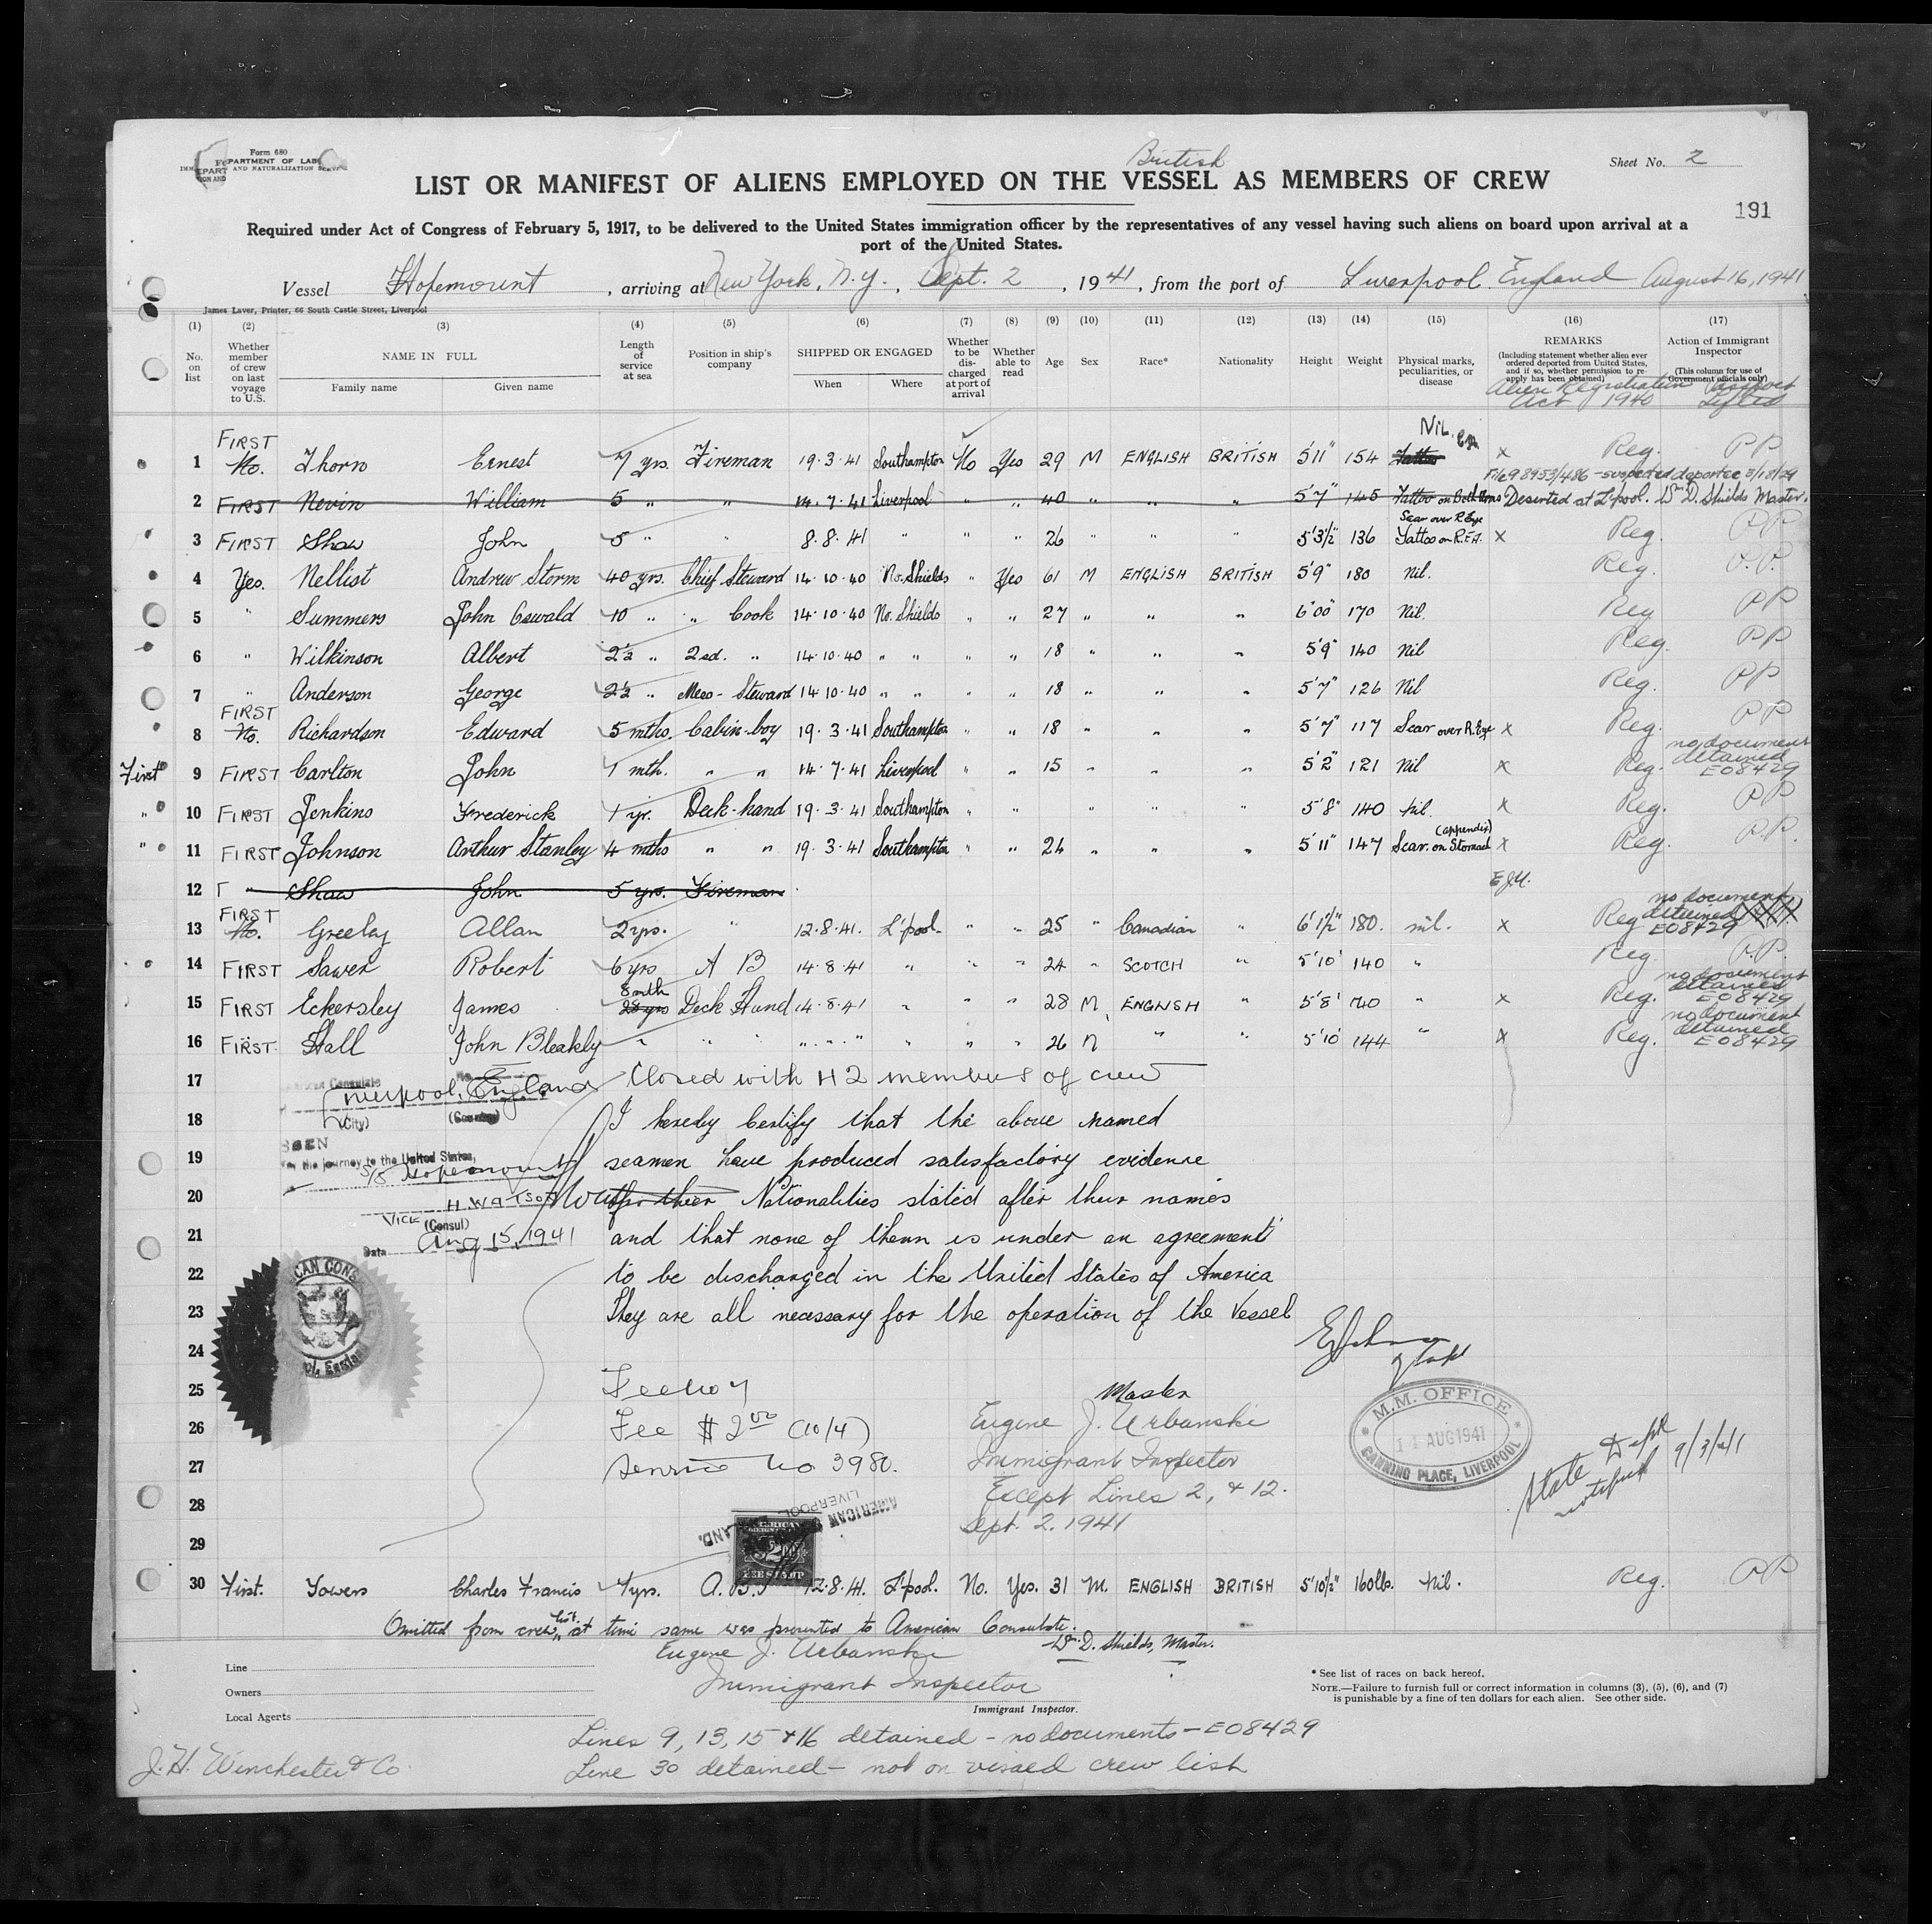 Form 680
DEPARTMENT OF LABOR
AND NATURALIZATION SERVICE
British
Sheet No. 2
LIST OR MANIFEST OF ALIENS EMPLOYED ON THE VESSEL AS MEMBERS OF CREW
191
Required under Act of Congress of February 5, 1917, to be delivered to the United States immigration officer by the representatives of any vessel having such aliens on board upon arrival at a
port of the United States.
Vessel Hopemount, arriving at New York, N.Y., Sept. 2, 1941, from the port of Liverpool England August 16, 1941
James Laver, Printer, 66 South Castle Street, Liverpool
(1) (2) (3) (4) (5) (6) (7) (8) (9) (10) (11) (12) (13) (14) (15) (16) (17)
No. on list
Whether member of crew on last voyage to U.S.
NAME IN FULL
Family name
Given name
Length of service at sea
Position in ship's company
SHIPPED OR ENGAGED
When
Where
Whether to be discharged at port of arrival
Whether able to read
Age
Sex
Race*
Nationality
Height
Weight
Physical marks, peculiarities, or disease
REMARKS
(Including statement whether alien ever ordered deported from United States, and if so, whether permission to reapply has been obtained)
Alien Registration Act 1940
Action of Immigrant Inspector
(This column for use of Government officials only)
Passport Lifted
1 FIRST No. Thorn Ernest 7 yrs. Fireman 19.3.41 Southampton No Yes 29 M ENGLISH BRITISH 5'11" 154 Tattoo Nil. x Reg. PP
File 98953/486 - suspected deportee 3/18/29
2 FIRST Nevin William 5 " " 14.7.41 Liverpool " " 40 " " " 5'7" 145 Tattoo on Both Arms Deserted at L'pool. Wm D. Shields Master.
3 FIRST Shaw John 5 " " 8.8.41 " " " 26 " " " 5'3½" 136 Scar over R. Eye Tattoo on R.F.A. x Reg. PP
4 Yes. Nellist Andrew Storm 40 yrs. Chief Steward 14.10.40 No. Shields " Yes 61 M ENGLISH BRITISH 5'9" 180 Nil. Reg. P.P.
5 " Summers John Oswald 10 " " Cook 14.10.40 No. Shields " " 27 " " " 6'00" 170 Nil. Reg PP
6 " Wilkinson Albert 2½ " 2nd. " 14.10.40 " " " " 18 " " " 5'9" 140 Nil Reg. PP
7 " Anderson George 2½ " Mess-Steward 14.10.40 " " " " 18 " " " 5'7" 126 Nil Reg. PP
8 FIRST No. Richardson Edward 5 mths. Cabin-boy 19.3.41 Southampton " " 18 " " " 5'7" 117 Scar over R. Eye x Reg. PP
First 9 FIRST Carlton John 1 mth. " " 14.7.41 Liverpool " " 15 " " " 5'2" 121 Nil x Reg. no document detained E08429
" 10 FIRST Jenkins Frederick 1 yr. Deck-hand 19.3.41 Southampton " " " " " 5'8" 140 Nil. x Reg. PP
" 11 FIRST Johnson Arthur Stanley 4 mths " " 19.3.41 Southampton " " 24 " " " 5'11" 147 Scar on Stomach (appendix) x Reg. PP.
12 " Shaw John 5 yrs. Fireman E.J.U.
13 FIRST No. Greeley Allan 2 yrs. " 12.8.41. L'pool " " 25 " Canadian " 6'1½" 180. nil. x Reg no document detained E08429
14 FIRST Sawer Robert 6 yrs A B 14.8.41 " " " 24 " SCOTCH " 5'10" 140 " Reg. P.P.
15 FIRST Eckersley James 8 mth 28 yrs Deck Hand 14.8.41 " " " 28 M ENGLISH " 5'8" 140 " x Reg. no document detained E08429
16 FIRST Hall John Bleakly " " " " " " " " " 26 M " " 5'10" 144 " x Reg. no document detained E08429
17 Closed with 42 members of crew
American Consulate
Liverpool, England
(City) (Country)
18 I hereby Certify that the above named
SEEN
19 seamen have produced satisfactory evidence
For the journey to the United States,
S/S Hopemount
20 of their Nationalities stated after their names
H. Watson
VICE (Consul)
21 and that none of them is under an agreement
Date Aug 15, 1941
22 to be discharged in the United States of America
23 They are all necessary for the operation of the Vessel
24
25 Master
26 Fee $2.00 (10/4) Eugene J. Urbanski
27 Service No 3980. Immigrant Inspector
28 Except Lines 2, & 12.
Sept. 2, 1941
29
M.M. OFFICE
11 AUG 1941
CANNING PLACE, LIVERPOOL
State Dept notified 9/3/41
AMERICAN
LIVERPOOL
FEE STAMP
30 First. Towers Charles Francis 4 yrs. A.B. 12.8.41. L'pool. No. Yes. 31 M. ENGLISH BRITISH 5'10½" 160lb. Nil. Reg. PP
Omitted from crew list at time same was presented to American Consulate.
Wm D. Shields, Master.
Eugene J. Urbanski
Immigrant Inspector
Immigrant Inspector.
Line
Owners
Local Agents
J. H. Winchester & Co.
* See list of races on back hereof.
NOTE.—Failure to furnish full or correct information in columns (3), (5), (6), and (7)
is punishable by a fine of ten dollars for each alien. See other side.
Lines 9, 13, 15 & 16 detained - no documents - E08429
Line 30 detained - not on visaed crew list